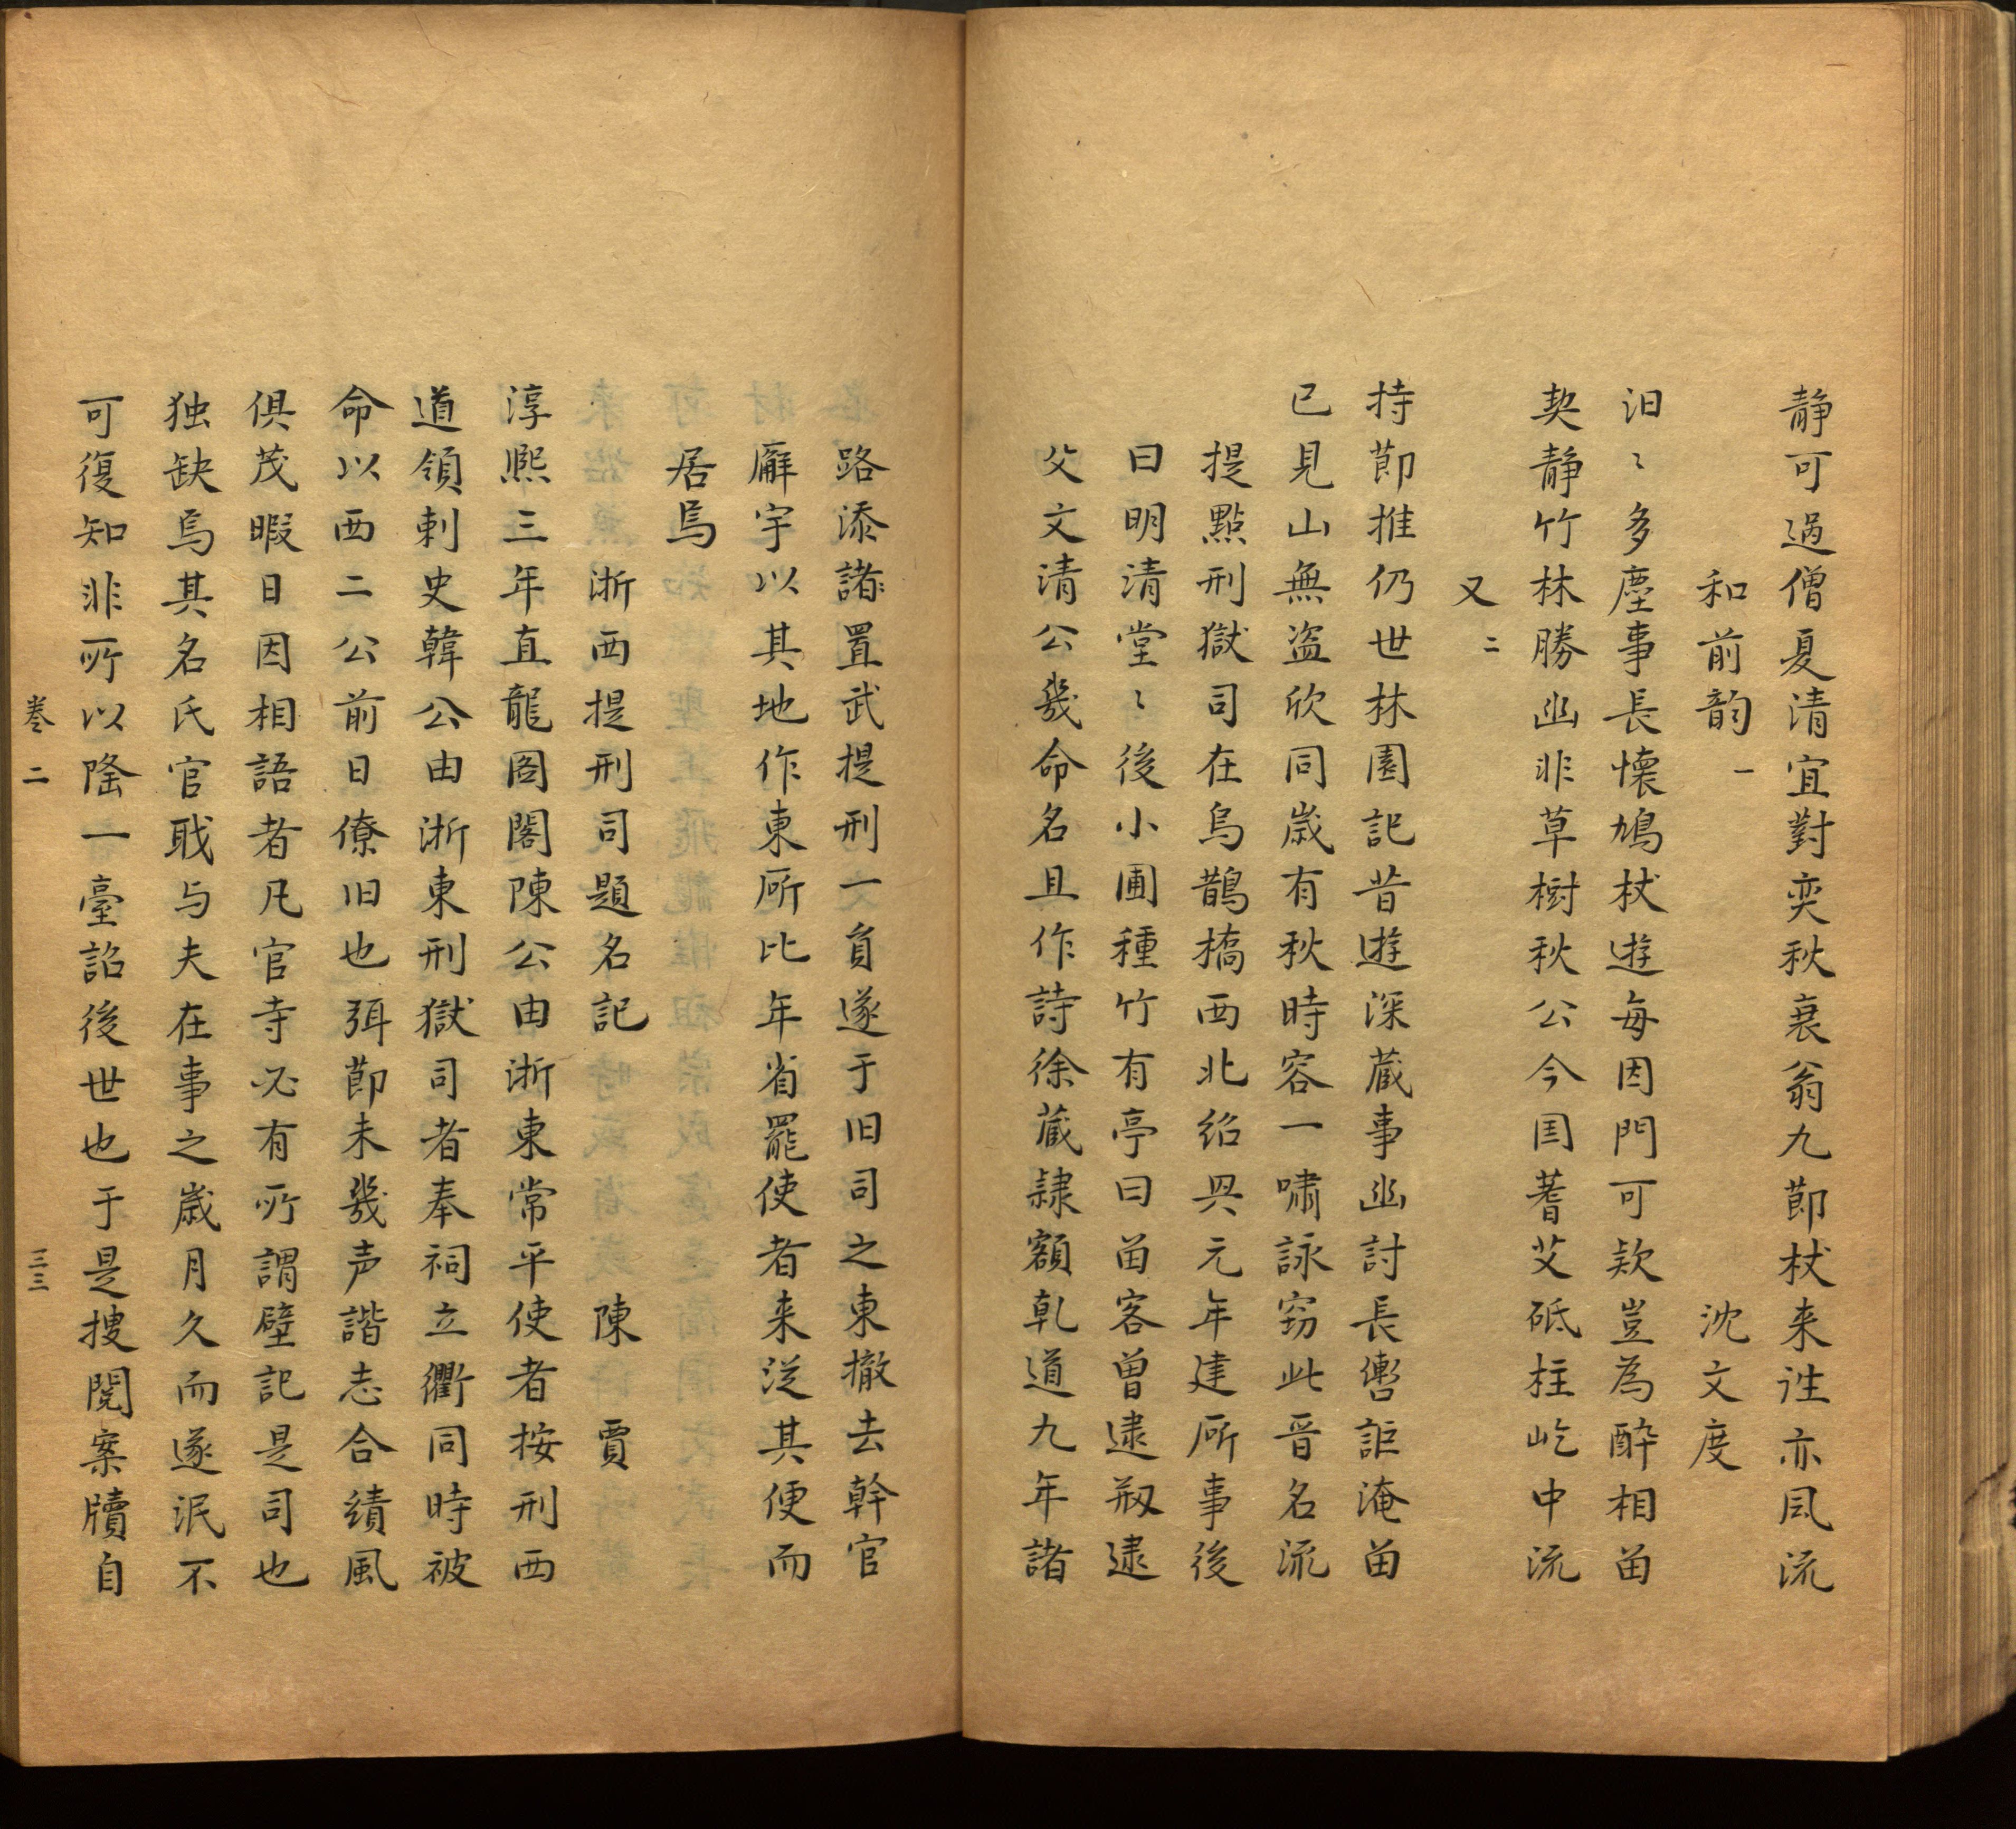 静可過僧夏清宜對奕秋衰翁九節杖来往亦风流
和前韵一 沈文度
汨〻多塵事長懷鳩杖遊每因門可款豈為酔相留
契静竹林勝幽非草樹秋公今国蓍艾砥柱屹中流
又二
持節推仍世林園記昔遊深蔵事幽討長轡詎淹留
已見山無盗欣同歳有秋時容一嘯詠窃此晋名流
提點刑獄司在烏鵲橋西北紹興元年建㕔事後
曰明清堂〻後小圃種竹有亭曰留客曾逮叔逮
父文清公幾命名且作詩徐蔵隷額乹道九年諸
路添諸置武提刑一員遂于旧司之東撤去幹官
廨宇以其地作東㕔比年省罷使者来従其便而
居焉
浙西提刑司題名記 陳 賈
淳熈三年直龍啚閣陳公由浙東常平使者按刑西
道領刺史韓公由浙東刑獄司者奉祠立衢同時被
命以西二公前日僚旧也弭節未幾声諧志合績風
俱茂暇日因相語者凡官寺必有所謂壁記是司也
独缺焉其名氏官戝与夫在事之歳月久而遂泯不
可復知非所以隆一臺詔後世也于是搜閲案牘自
卷二 三三